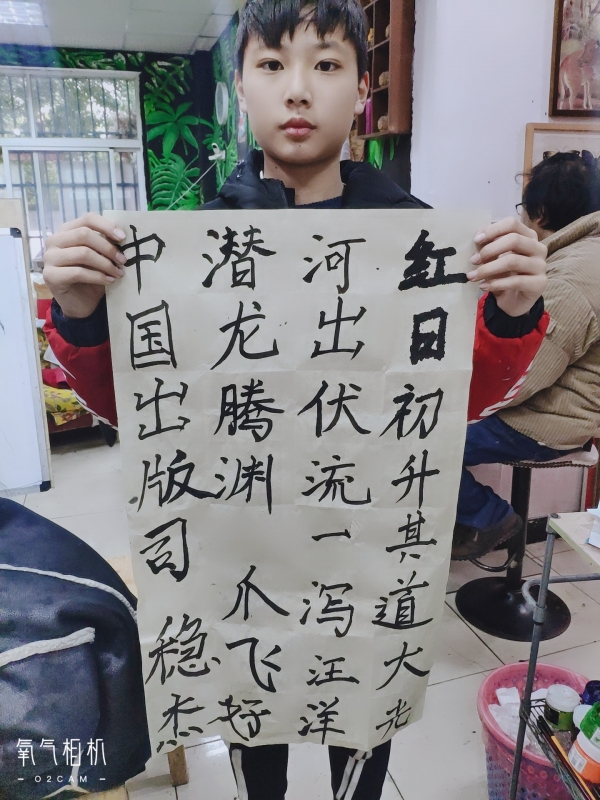 红日初升其道大光
河出伏流一泻汪洋
潜龙腾渊爪飞好
中国出版司稳杰
氧气相机
O2CAM